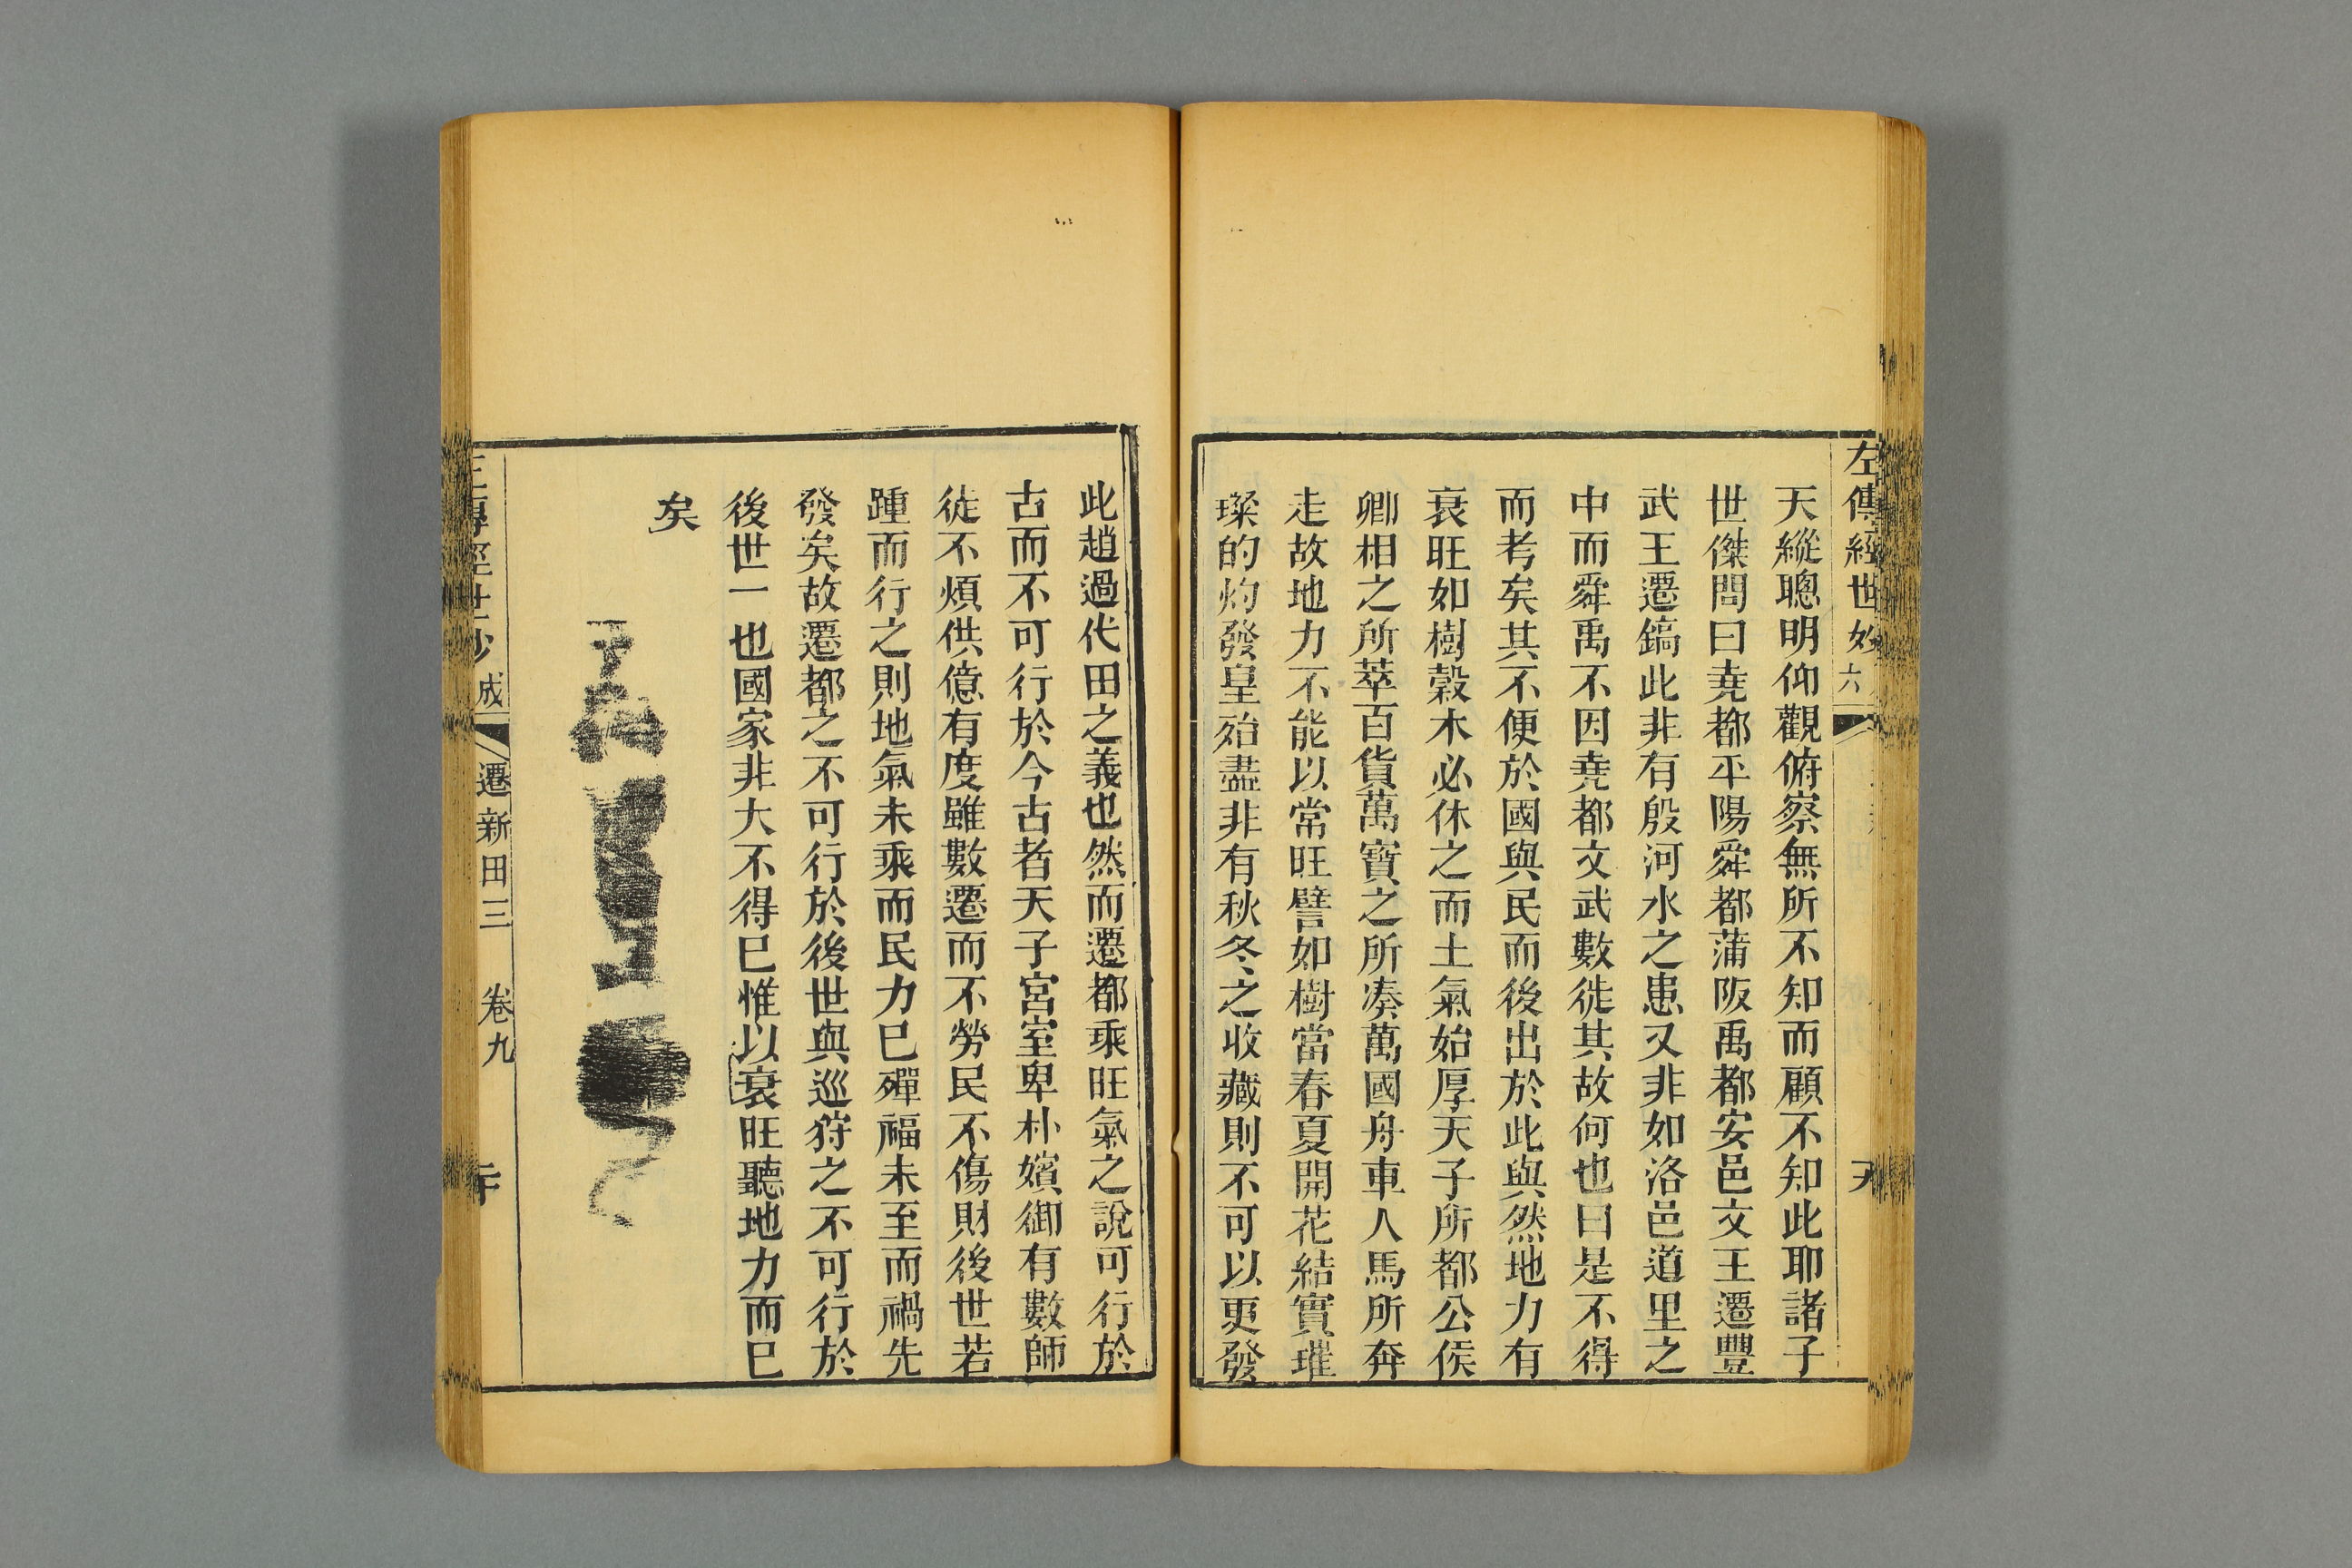 左傳經世鈔
六
天縱聰明仰觀俯察無所不知而顧不知此耶諸子
世傑問曰堯都平陽舜都蒲阪禹都安邑文王遷豐
武王遷鎬此非有殷河水之患又非如洛邑道里之
中而舜禹不因堯都文武數徙其故何也曰是不得
而考矣其不便於國與民而後出於此與然地力有
衰旺如樹穀木必休之而土氣始厚天子所都公侯
卿相之所萃百貨萬寶之所凑萬國舟車人馬所奔
走故地力不能以常旺譬如樹當春夏開花結實璀
璨的灼發皇殆盡非有秋冬之收藏則不可以更發
此趙過代田之義也然而遷都乘旺氣之說可行於
古而不可行於今古者天子宮室卑朴嬪御有數師
徒不煩供億有度雖數遷而不勞民不傷財後世若
踵而行之則地氣未乘而民力巳殫福未至而禍先
發矣故遷都之不可行於後世與巡狩之不可行於
後世一也國家非大不得巳惟以衰旺聽地力而巳
矣
左傳經世鈔
成
遷新田三 卷九